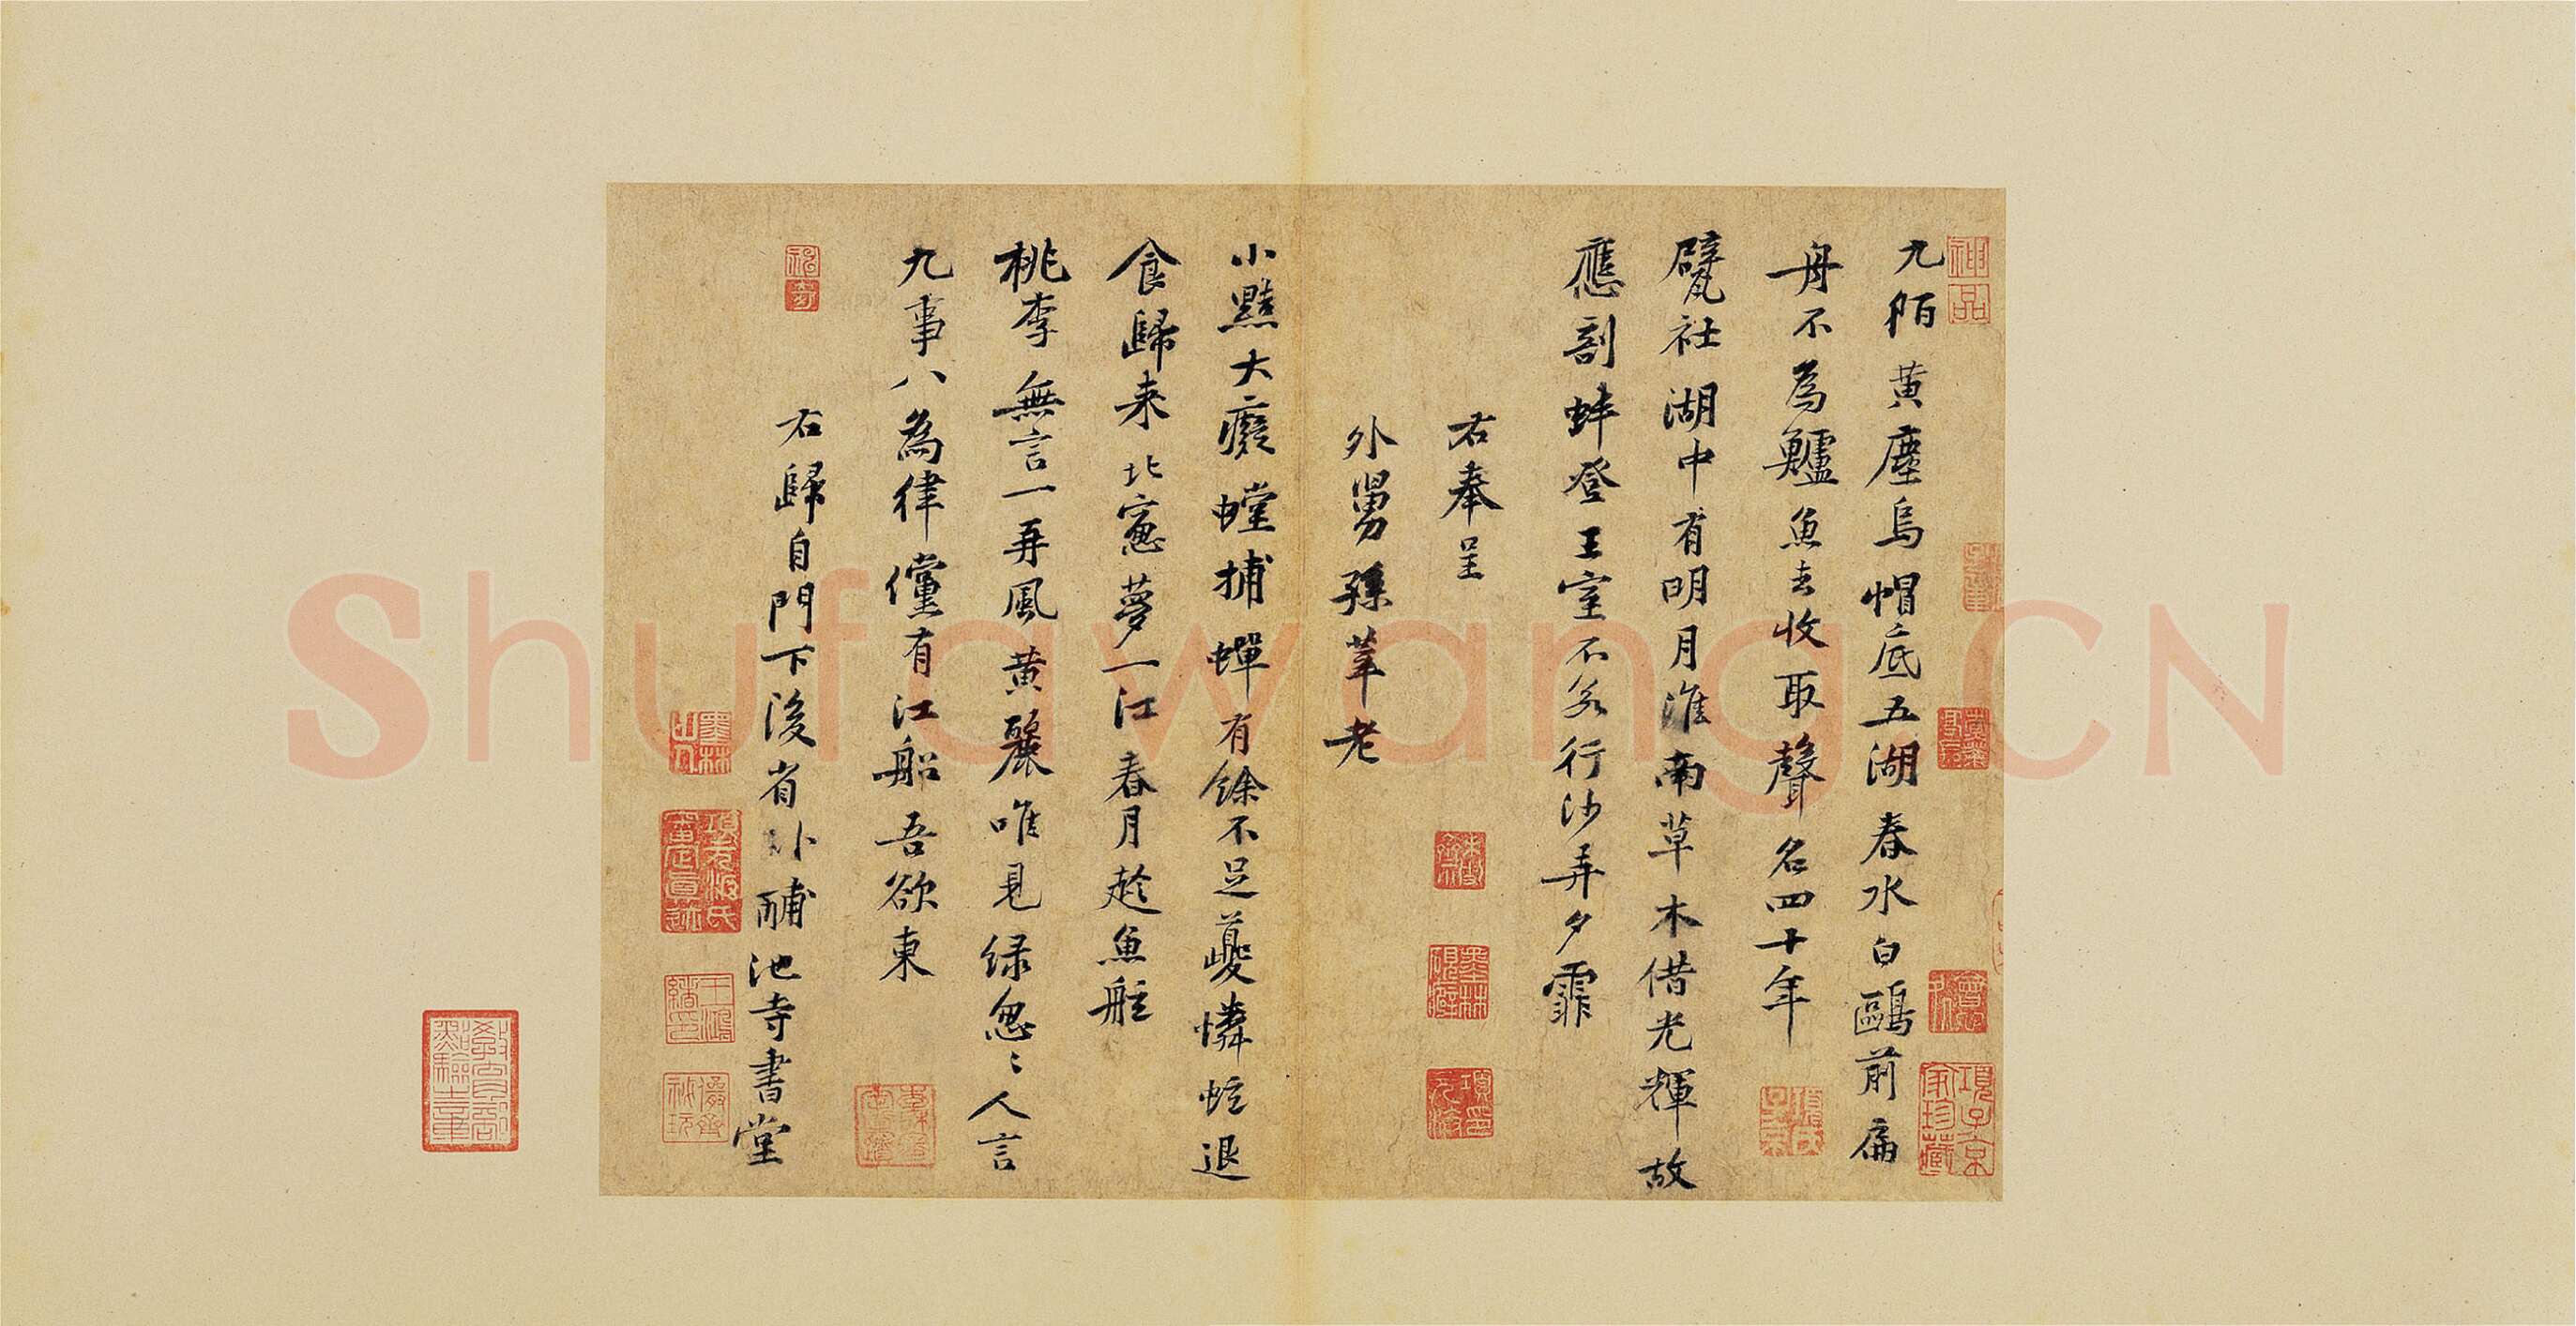 九陌黄塵烏帽底五湖春水白鷗前扁
舟不為鱸魚去收取聲名四十年
甓社湖中有明月淮南草木借光輝故
應剖蚌登王室不若行沙弄夕霏
右奉呈
外舅孫莘老
小黠大癡螳捕蟬有餘不足夔憐蚿退
食歸来北窻夢一江春月趂魚舩
桃李無言一再風黄鸝唯見緑忽〻人言
九事八為律儻有江船吾欲東
右歸自門下後省卧酺池寺書堂
神品
項子京家珍藏
墨林山人
項元汴印
Shufawang.CN